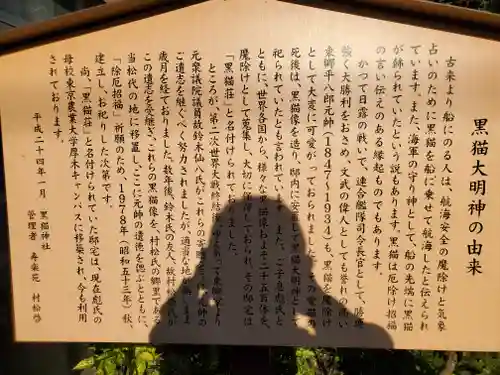 黒猫大明神の由来
古来より船にのる人は、航海安全の魔除けと気象
占いのために黒猫を船に乗せて航海したと伝えられ
ています。また、海軍の守り神として、船の先端に黒猫
が飾られていたという説もあります。黒猫は厄除け招福
の言い伝えのある縁起ものでもあります。
かつて日露の戦いで、連合艦隊司令長官として、勝運
強く大勝利をおさめ、文武の偉人としても誉れの高い
東郷平八郎元帥(1847〜1934)も、黒猫を魔除け
として大変に可愛がっておられました。
死後は、黒猫像を造り、邸内に安置して黒猫大明神として
祀られていたとも言われています。また、ご子息彪氏と
ともに、世界各国から様々な黒猫像およそ二千五百体を、
魔除けとして蒐集し、大切に保存しておられ、その邸宅は
「黒猫荘」と名付けられておりました。
ところが、第二次世界大戦終結後、
元衆議院議員故鈴木仙八氏がこれらの
ご遺志を継ぐべく努力されましたが、適当な地が
歳月を経ておりました。数年後鈴木氏の友人、故村松
この遺志を受継ぎ、これらの黒猫像を、村松氏の郷里である
当松代の地に移置し、ここに元帥の遺徳を偲ぶとともに、
「除厄招福」祈願のため、1978年(昭和五十三年)秋、
建立し、お祀りした次第です。
尚、「黒猫荘」と名付けられていた邸宅は、現在彪氏の
母校東京農業大学厚木キャンパスに移築され、今も利用
されております。
平成二十四年一月 黒猫神社
管理者 寿楽苑 村松